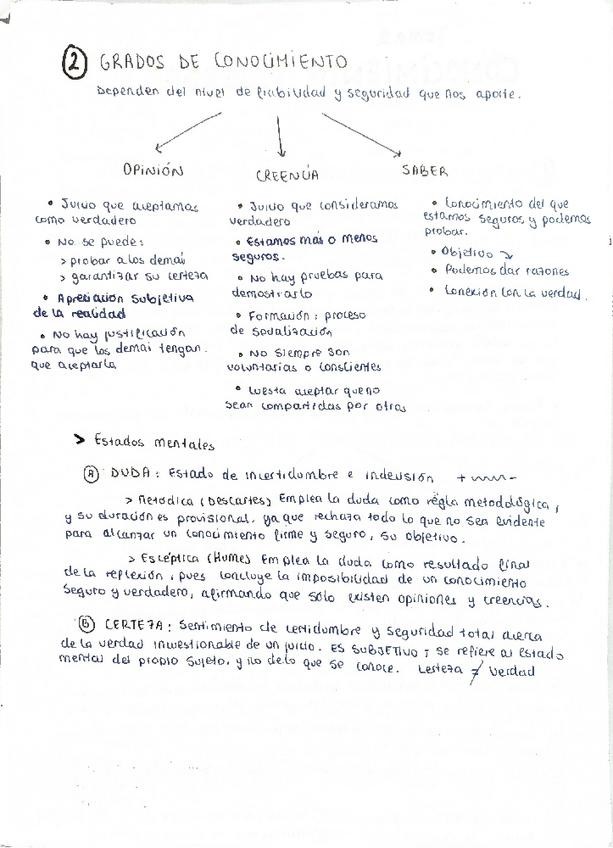 ② GRADOS DE CONOCIMIENTO
Dependen del nivel de fiabilidad y seguridad que nos aporte.
OPINIÓN
• Juicio que aceptamos
como verdadero
• No se puede:
> probar a los demás
> garantizar su certeza
• Apreciación subjetiva
de la realidad
• No hay justificación
para que los demás tengan
que aceptarla
CREENCIA
• Juicio que consideramos
verdadero
• Estamos más o menos
seguros.
• No hay pruebas para
demostrarlo
• Formación: proceso
de socialización
• No siempre son
voluntarias o conscientes
• Cuesta aceptar que no
sean compartidas por otros
SABER
• Conocimiento del que
estamos seguros y podemos
probar.
• Objetivo ↘
• Podemos dar razones
• Conexión con la verdad.
> Estados mentales
Ⓐ DUDA: Estado de incertidumbre e indecisión
> Metódica (Descartes) Emplea la duda como regla metodológica,
y su duración es provisional, ya que rechaza todo lo que no sea evidente
para alcanzar un conocimiento firme y seguro, su objetivo.
> Escéptica (Hume) Emplea la duda como resultado final
de la reflexión, pues concluye la imposibilidad de un conocimiento
seguro y verdadero, afirmando que solo existen opiniones y creencias.
Ⓑ CERTEZA: Sentimiento de certidumbre y seguridad total acerca
de la verdad incuestionable de un juicio. ES SUBJETIVO; se refiere al estado
mental del propio sujeto, y no de lo que se conoce. Certeza ≠ Verdad